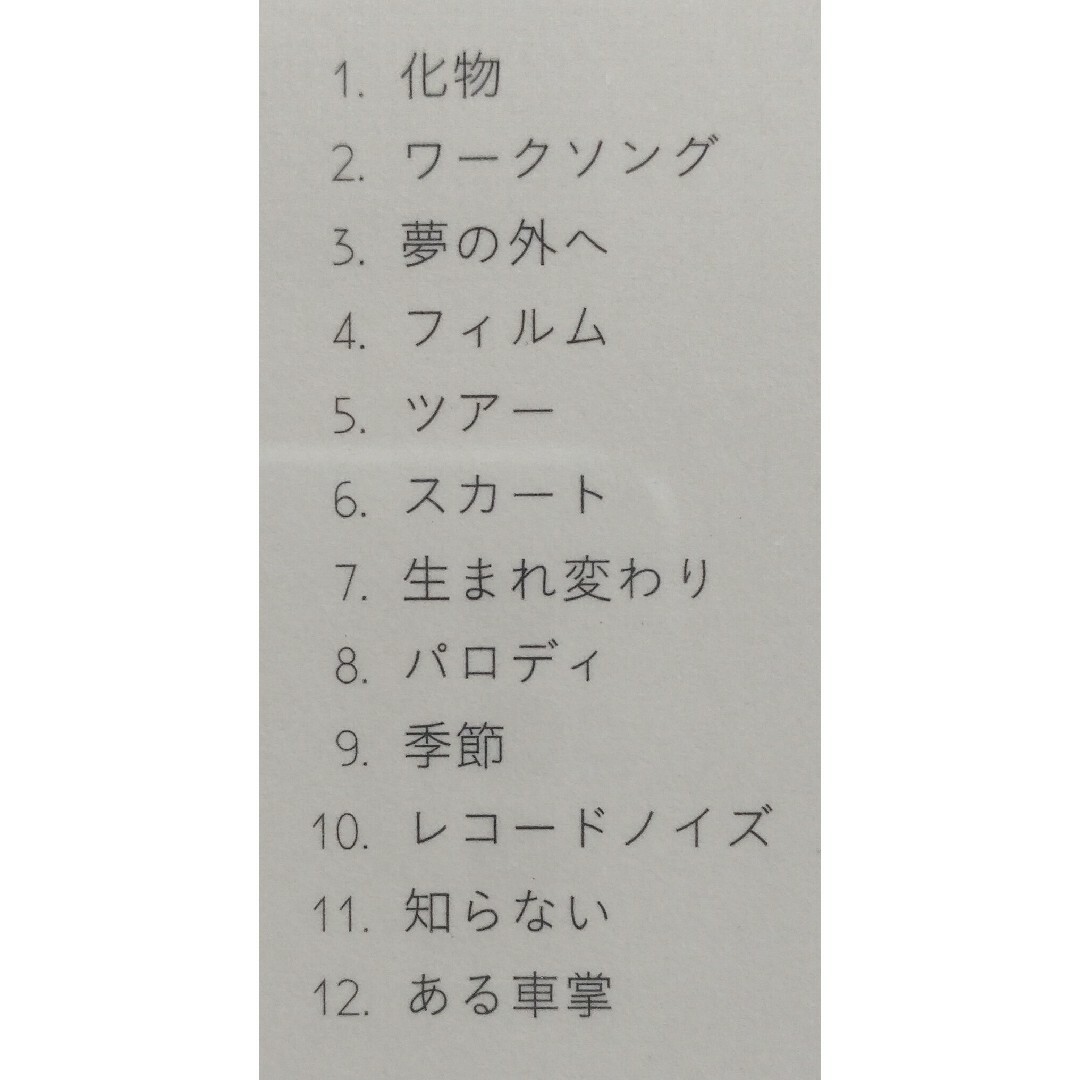 1. 化物
2. ワークソング
3. 夢の外へ
4. フィルム
5. ツアー
6. スカート
7. 生まれ変わり
8. パロディ
9. 季節
10. レコードノイズ
11. 知らない
12. ある車掌